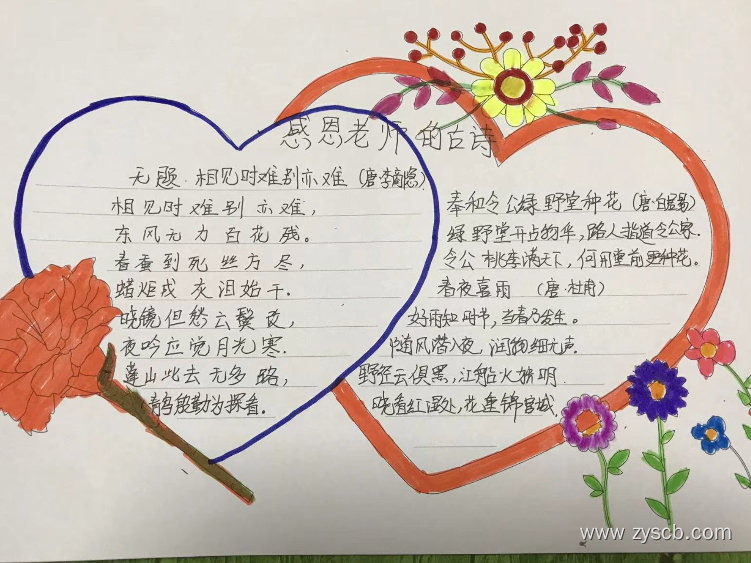 感恩老师的古诗
无题·相见时难别亦难（唐·李商隐）
相见时难别亦难，
东风无力百花残。
春蚕到死丝方尽，
蜡炬成灰泪始干.
晓镜但愁云鬓改，
夜吟应觉月光寒.
蓬山此去无多路，
青鸟殷勤为探看.
奉和令公绿野堂种花（唐·白居易）
绿野堂开占物华，路人指道令公家.
令公桃李满天下，何用堂前更种花.
春夜喜雨（唐·杜甫）
好雨知时节，当春乃发生。
随风潜入夜，润物细无声.
野径云俱黑，江船火独明.
晓看红湿处，花重锦官城.
www.zyscb.com